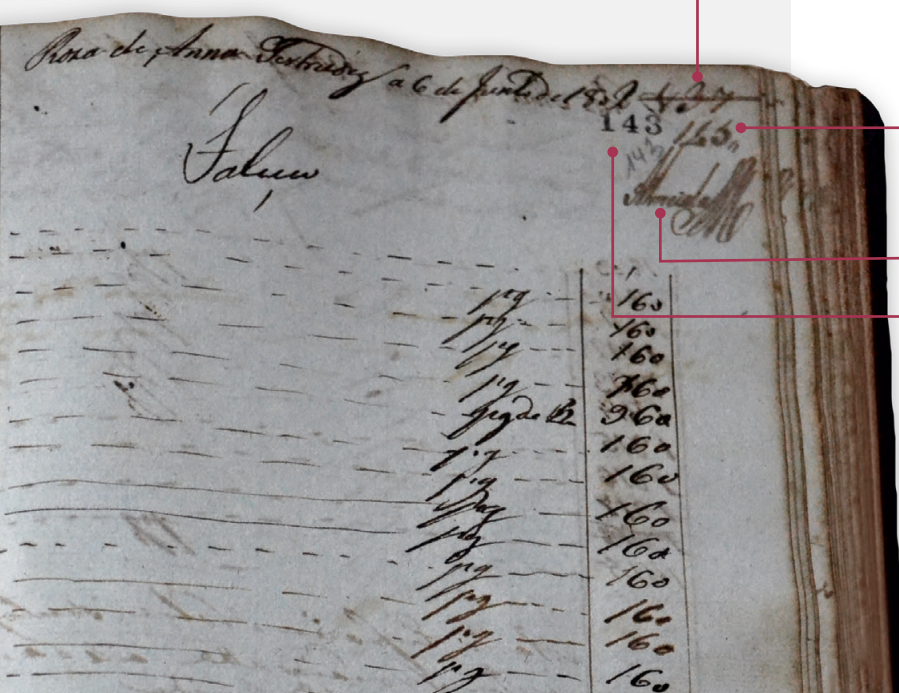 Rosa de Anna Gertrudiz a 6 de Junho de
143
143
Faleceo
pg 160
pg 160
pg 160
pg 160
pg de 960
pg 160
pg 160
pg 160
pg 160
pg 160
pg 160
pg 160
pg 160